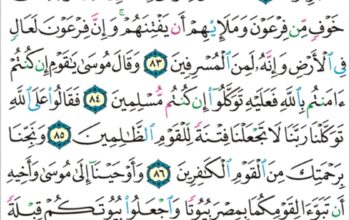 خَوْفٍ مِّن فِرْعَوْنَ وَمَلَإِيْهِمْ أَن يَفْتِنَهُمْ ۚ وَإِنَّ فِرْعَوْنَ لَعَالٍ
فِى ٱلْأَرْضِ وَإِنَّهُۥ لَمِنَ ٱلْمُسْرِفِينَ ٨٣ وَقَالَ مُوسَىٰ يَـٰقَوْمِ إِن كُنتُمْ
ءَامَنتُم بِٱللَّهِ فَعَلَيْهِ تَوَكَّلُوٓا۟ إِن كُنتُم مُّسْلِمِينَ ٨٤ فَقَالُوا۟ عَلَى ٱللَّهِ
تَوَكَّلْنَا رَبَّنَا لَا تَجْعَلْنَا فِتْنَةً لِّلْقَوْمِ ٱلظَّـٰلِمِينَ ٨٥ وَنَجِّنَا
بِرَحْمَتِكَ مِنَ ٱلْقَوْمِ ٱلْكَـٰفِرِينَ ٨٦ وَأَوْحَيْنَآ إِلَىٰ مُوسَىٰ وَأَخِيهِ
أَن تَبَوَّءَا لِقَوْمِكُمَا بِمِصْرَ بُيُوتًا وَٱجْعَلُوا۟ بُيُوتَكُمْ قِبْلَةً